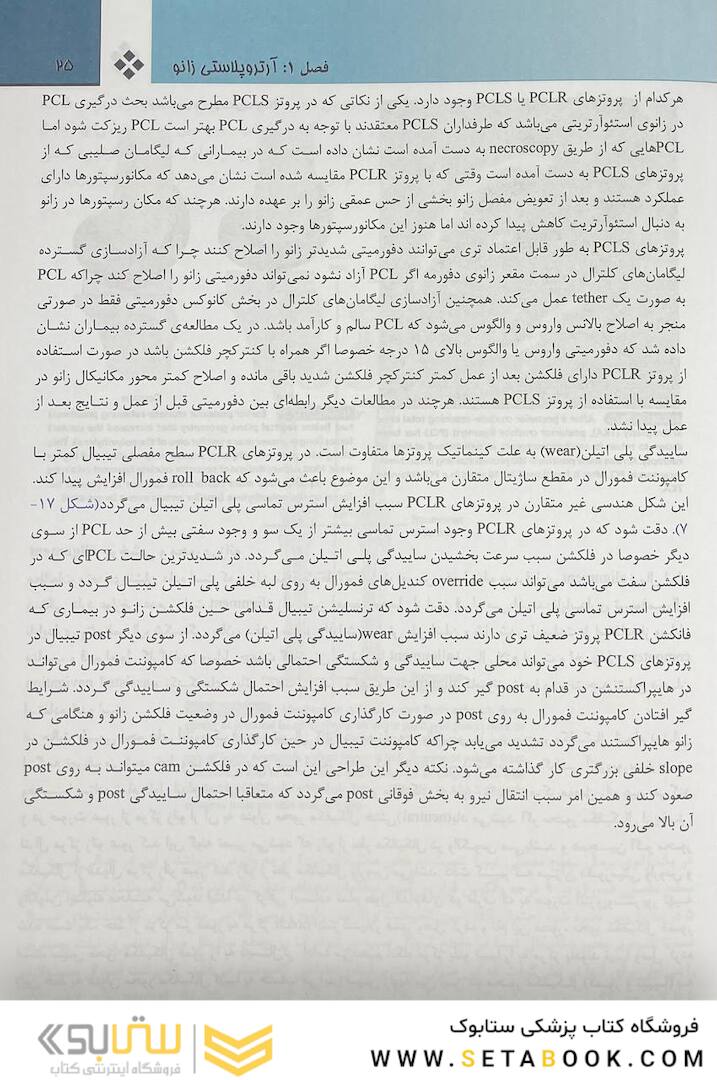 فصل ۱: آرتروپلاستی زانو
۲۵
هرکدام از پروتزهای PCLR یا PCLS وجود دارد. یکی از نکاتی که در پروتز PCLS مطرح می‌باشد بحث درگیری PCL
در زانوی استئوآرتریتی می‌باشد که طرفداران PCLS معتقدند با توجه به درگیری PCL بهتر است PCL ریزکت شود اما
PCLهایی که از طریق necroscopy به دست آمده است نشان داده است که در بیمارانی که لیگامان صلیبی که از
پروتزهای PCLS به دست آمده است وقتی که با پروتز PCLR مقایسه شده است نشان می‌دهد که مکانورسپتورها دارای
عملکرد هستند و بعد از تعویض مفصل زانو بخشی از حس عمقی زانو را بر عهده دارند. هرچند که مکان رسپتورها در زانو
به دنبال استئوآرتریت کاهش پیدا کرده اند اما هنوز این مکانورسپتورها وجود دارند.
پروتزهای PCLS به طور قابل اعتماد تری می‌توانند دفورمیتی شدیدتر زانو را اصلاح کنند چرا که آزادسازی گسترده
لیگامان‌های کلترال در سمت مقعر زانوی دفورمه اگر PCL آزاد نشود نمی‌تواند دفورمیتی زانو را اصلاح کند چراکه PCL
به صورت یک tether عمل می‌کند. همچنین آزادسازی لیگامان‌های کلترال در بخش کانوکس دفورمیتی فقط در صورتی
منجر به اصلاح بالانس واروس و والگوس می‌شود که PCL سالم و کارآمد باشد. در یک مطالعه‌ی گسترده بیماران نشان
داده شد که دفورمیتی واروس یا والگوس بالای ۱۵ درجه خصوصا اگر همراه با کنترکچر فلکشن باشد در صورت استفاده
از پروتز PCLR دارای فلکشن بعد از عمل کمتر کنترکچر فلکشن شدید باقی مانده و اصلاح کمتر محور مکانیکال زانو در
مقایسه با استفاده از پروتز PCLS هستند. هرچند در مطالعات دیگر رابطه‌ای بین دفورمیتی قبل از عمل و نتایج بعد از
عمل پیدا نشد.
ساییدگی پلی اتیلن(wear) به علت کینماتیک پروتزها متفاوت است. در پروتزهای PCLR سطح مفصلی تیبیال کمتر با
کامپوننت فمورال در مقطع ساژیتال متقارن می‌باشد و این موضوع باعث می‌شود که roll back فمورال افزایش پیدا کند.
این شکل هندسی غیر متقارن در پروتزهای PCLR سبب افزایش استرس تماسی پلی اتیلن تیبیال می‌گردد(شکل ۱۷-
۷). دقت شود که در پروتزهای PCLR وجود استرس تماسی بیشتر از یک سو و وجود سفتی بیش از حد PCL از سوی
دیگر خصوصا در فلکشن سبب سرعت بخشیدن ساییدگی پلی اتیلن می‌گردد. در شدیدترین حالت PCLای که در
فلکشن سفت می‌باشد می‌تواند سبب override کندیل‌های فمورال به روی لبه خلفی پلی اتیلن تیبیال گردد و سبب
افزایش استرس تماسی پلی اتیلن می‌گردد. دقت شود که ترنسلیشن تیبیال قدامی حین فلکشن زانو در بیماری که
فانکشن PCLR پروتز ضعیف تری دارند سبب افزایش wear(ساییدگی پلی اتیلن) می‌گردد. از سوی دیگر post تیبیال در
پروتزهای PCLS خود می‌تواند محلی جهت ساییدگی و شکستگی احتمالی باشد خصوصا که کامپوننت فمورال می‌تواند
در هایپراکستنشن در قدام به post گیر کند و از این طریق سبب افزایش احتمال شکستگی و ساییدگی گردد. شرایط
گیر افتادن کامپوننت فمورال به روی post در صورت کارگذاری کامپوننت فمورال در وضعیت فلکشن زانو و هنگامی که
زانو هایپراکستند می‌گردد تشدید می‌یابد چراکه کامپوننت تیبیال در حین کارگذاری کامپوننت فمورال در فلکشن در
slope خلفی بزرگتری کار گذاشته می‌شود. نکته دیگر این طراحی این است که در فلکشن cam میتواند به روی post
صعود کند و همین امر سبب انتقال نیرو به بخش فوقانی post می‌گردد که متعاقبا احتمال ساییدگی post و شکستگی
آن بالا می‌رود.
فروشگاه کتاب پزشکی ستابوک
WWW.SETABOOK.COM
ستابوک
فروشگاه اینترنتی کتاب